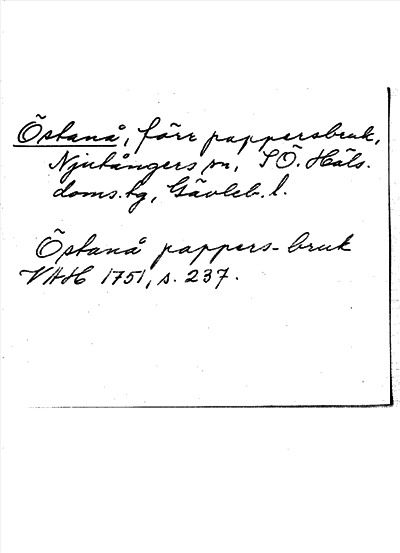 Östanå, förr pappersbruk,
Njutångers sn, SÖ. Häls.
doms.tg, Gävleb. l.
Östanå pappers-bruk
VAH 1751, s. 237.